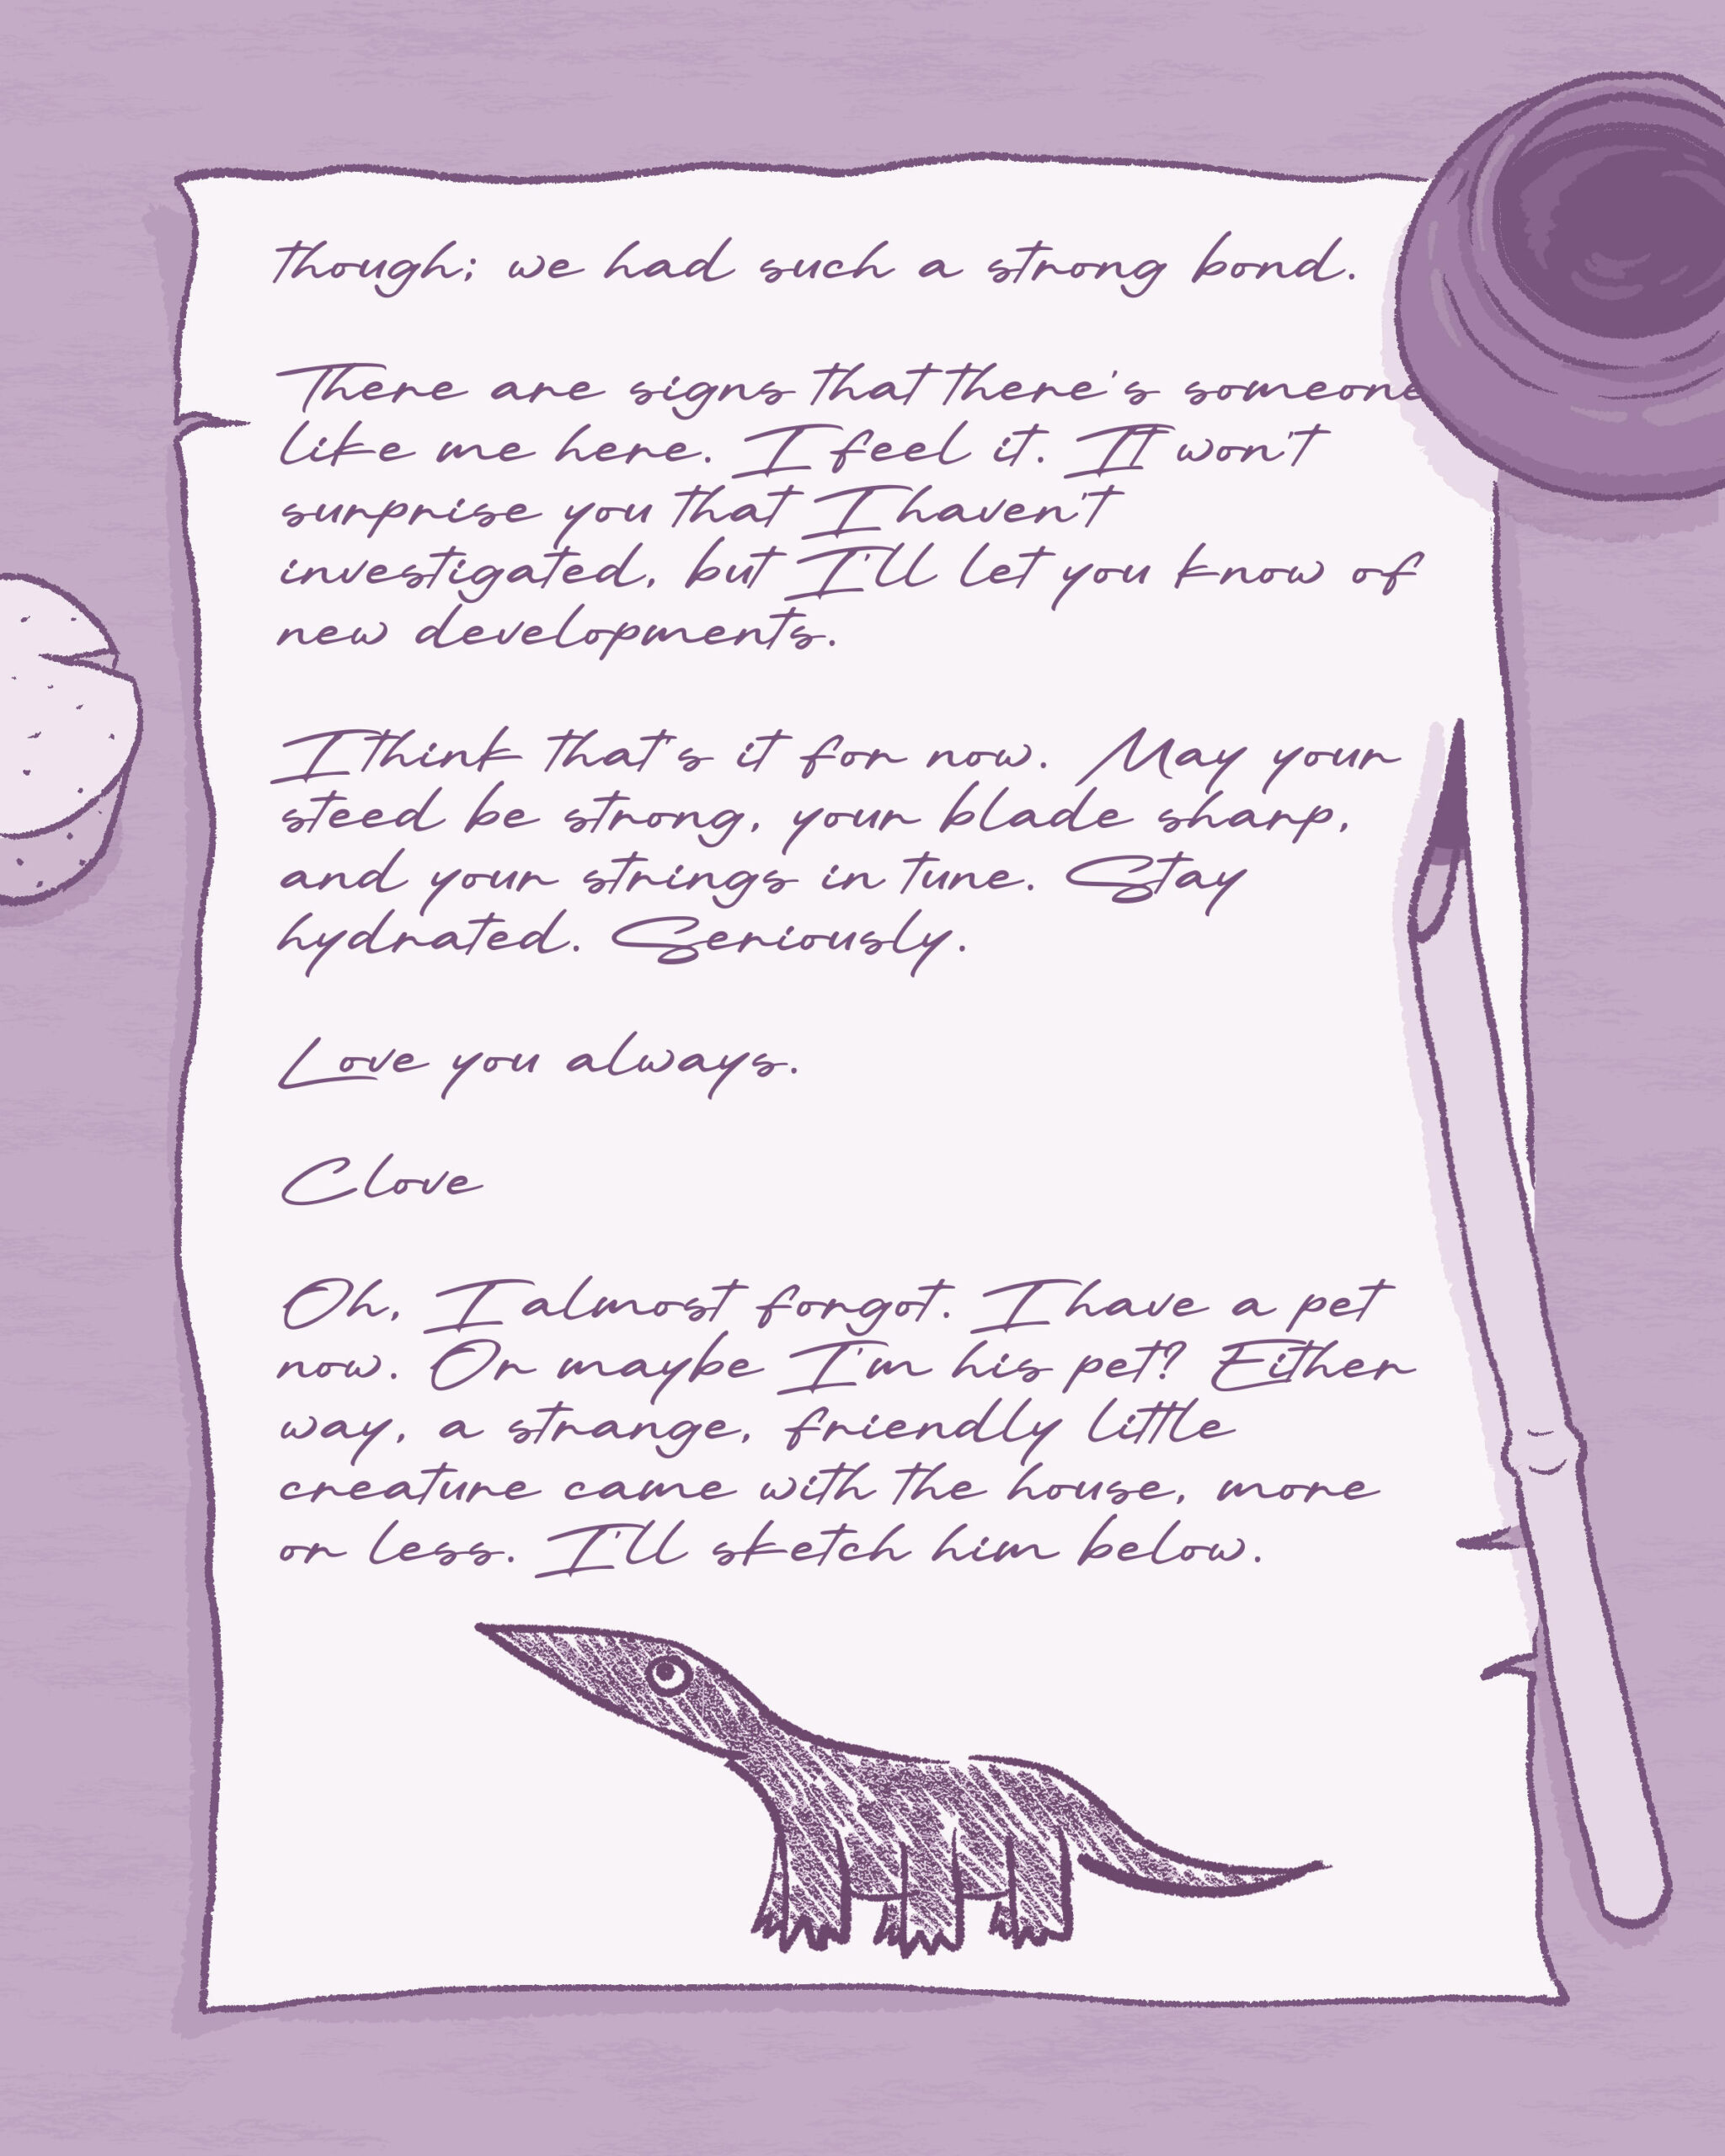 though; we had such a strong bond.
There are signs that there's someone
like me here. I feel it. It won't
surprise you that I haven't
investigated, but I'll let you know of
new developments.
I think that's it for now. May your
steed be strong, your blade sharp,
and your strings in tune. Stay
hydrated. Seriously.
Love you always.
Clove
Oh, I almost forgot. I have a pet
now. Or maybe I'm his pet? Either
way, a strange, friendly little
creature came with the house, more
or less. I'll sketch him below.